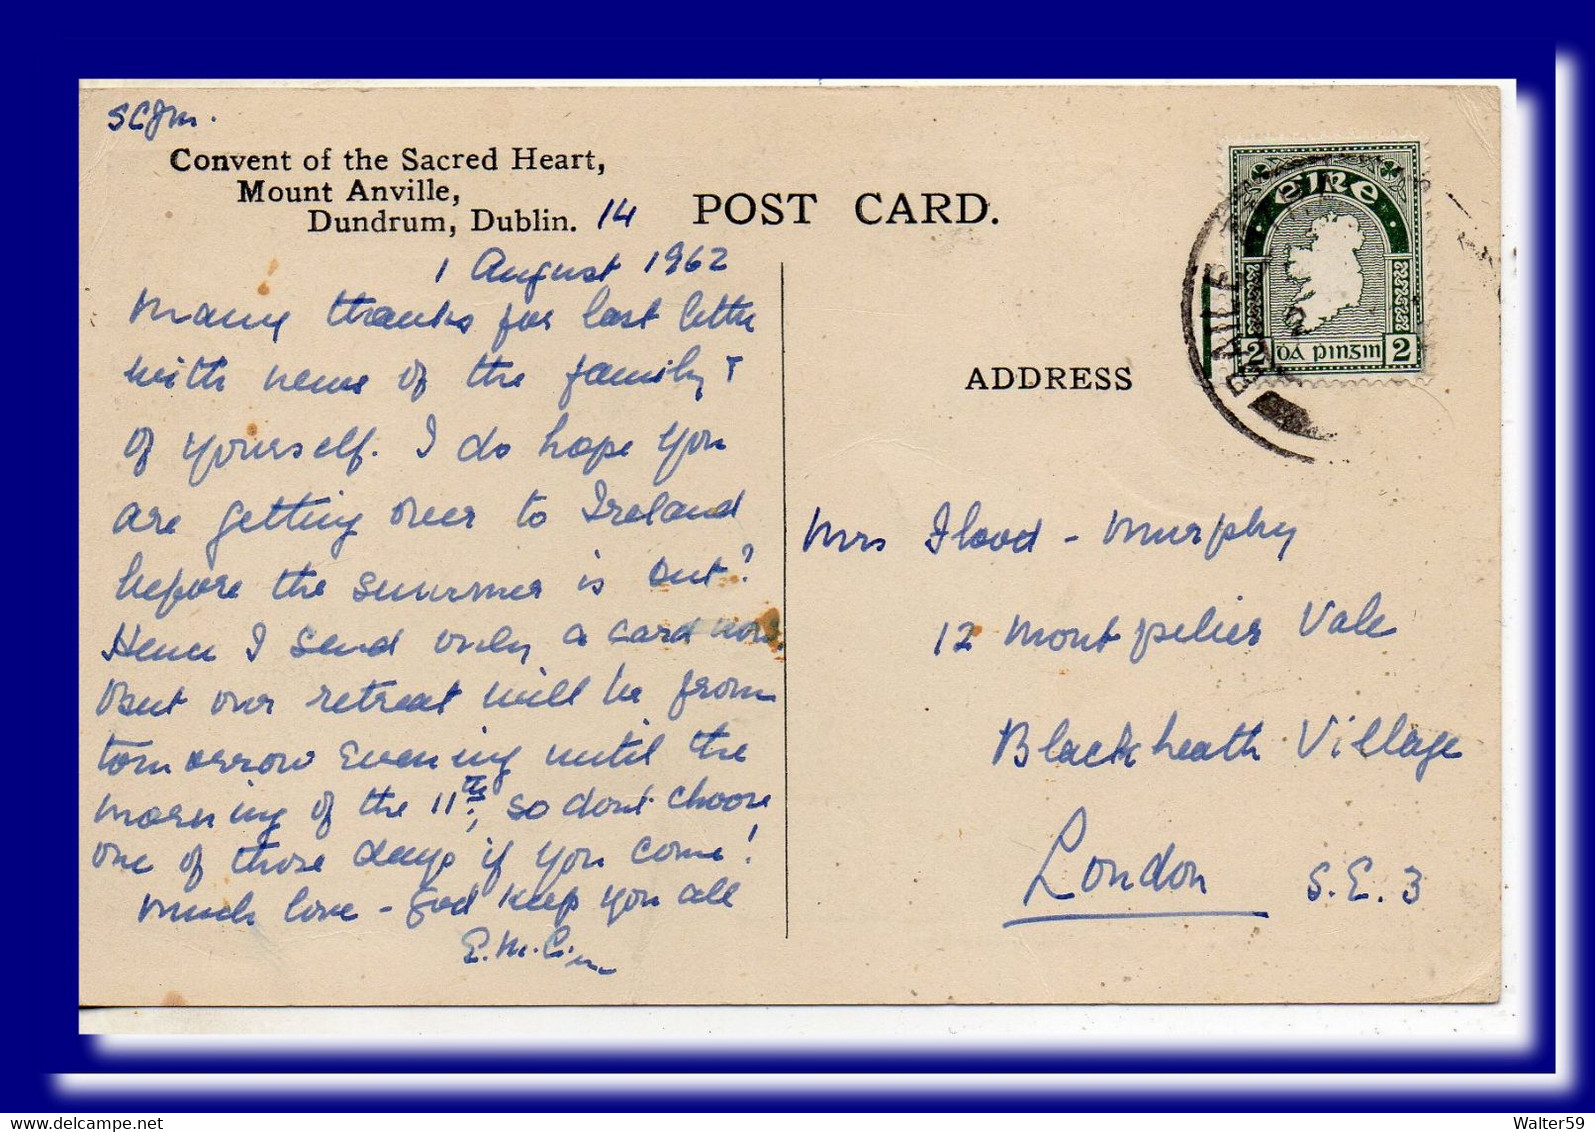 SCJM.
Convent of the Sacred Heart,
Mount Anville,
Dundrum, Dublin. 14
POST CARD.
1 August 1962
Many thanks for last letter
with news of the family &
of yourself. I do hope you
are getting over to Ireland
before the summer is out?
Hence I send only a card now.
But our retreat will be from
tomorrow evening until the
morning of the 11th, so dont choose
one of those days if you come!
Much love - God keep you all
E. M. C.
ADDRESS
Mrs Flood - Murphy
12 Montpelier Vale
Blackheath Village
London S.E.3
eire
2 dá pingin 2
BAILE
delcampe.net
Walter59